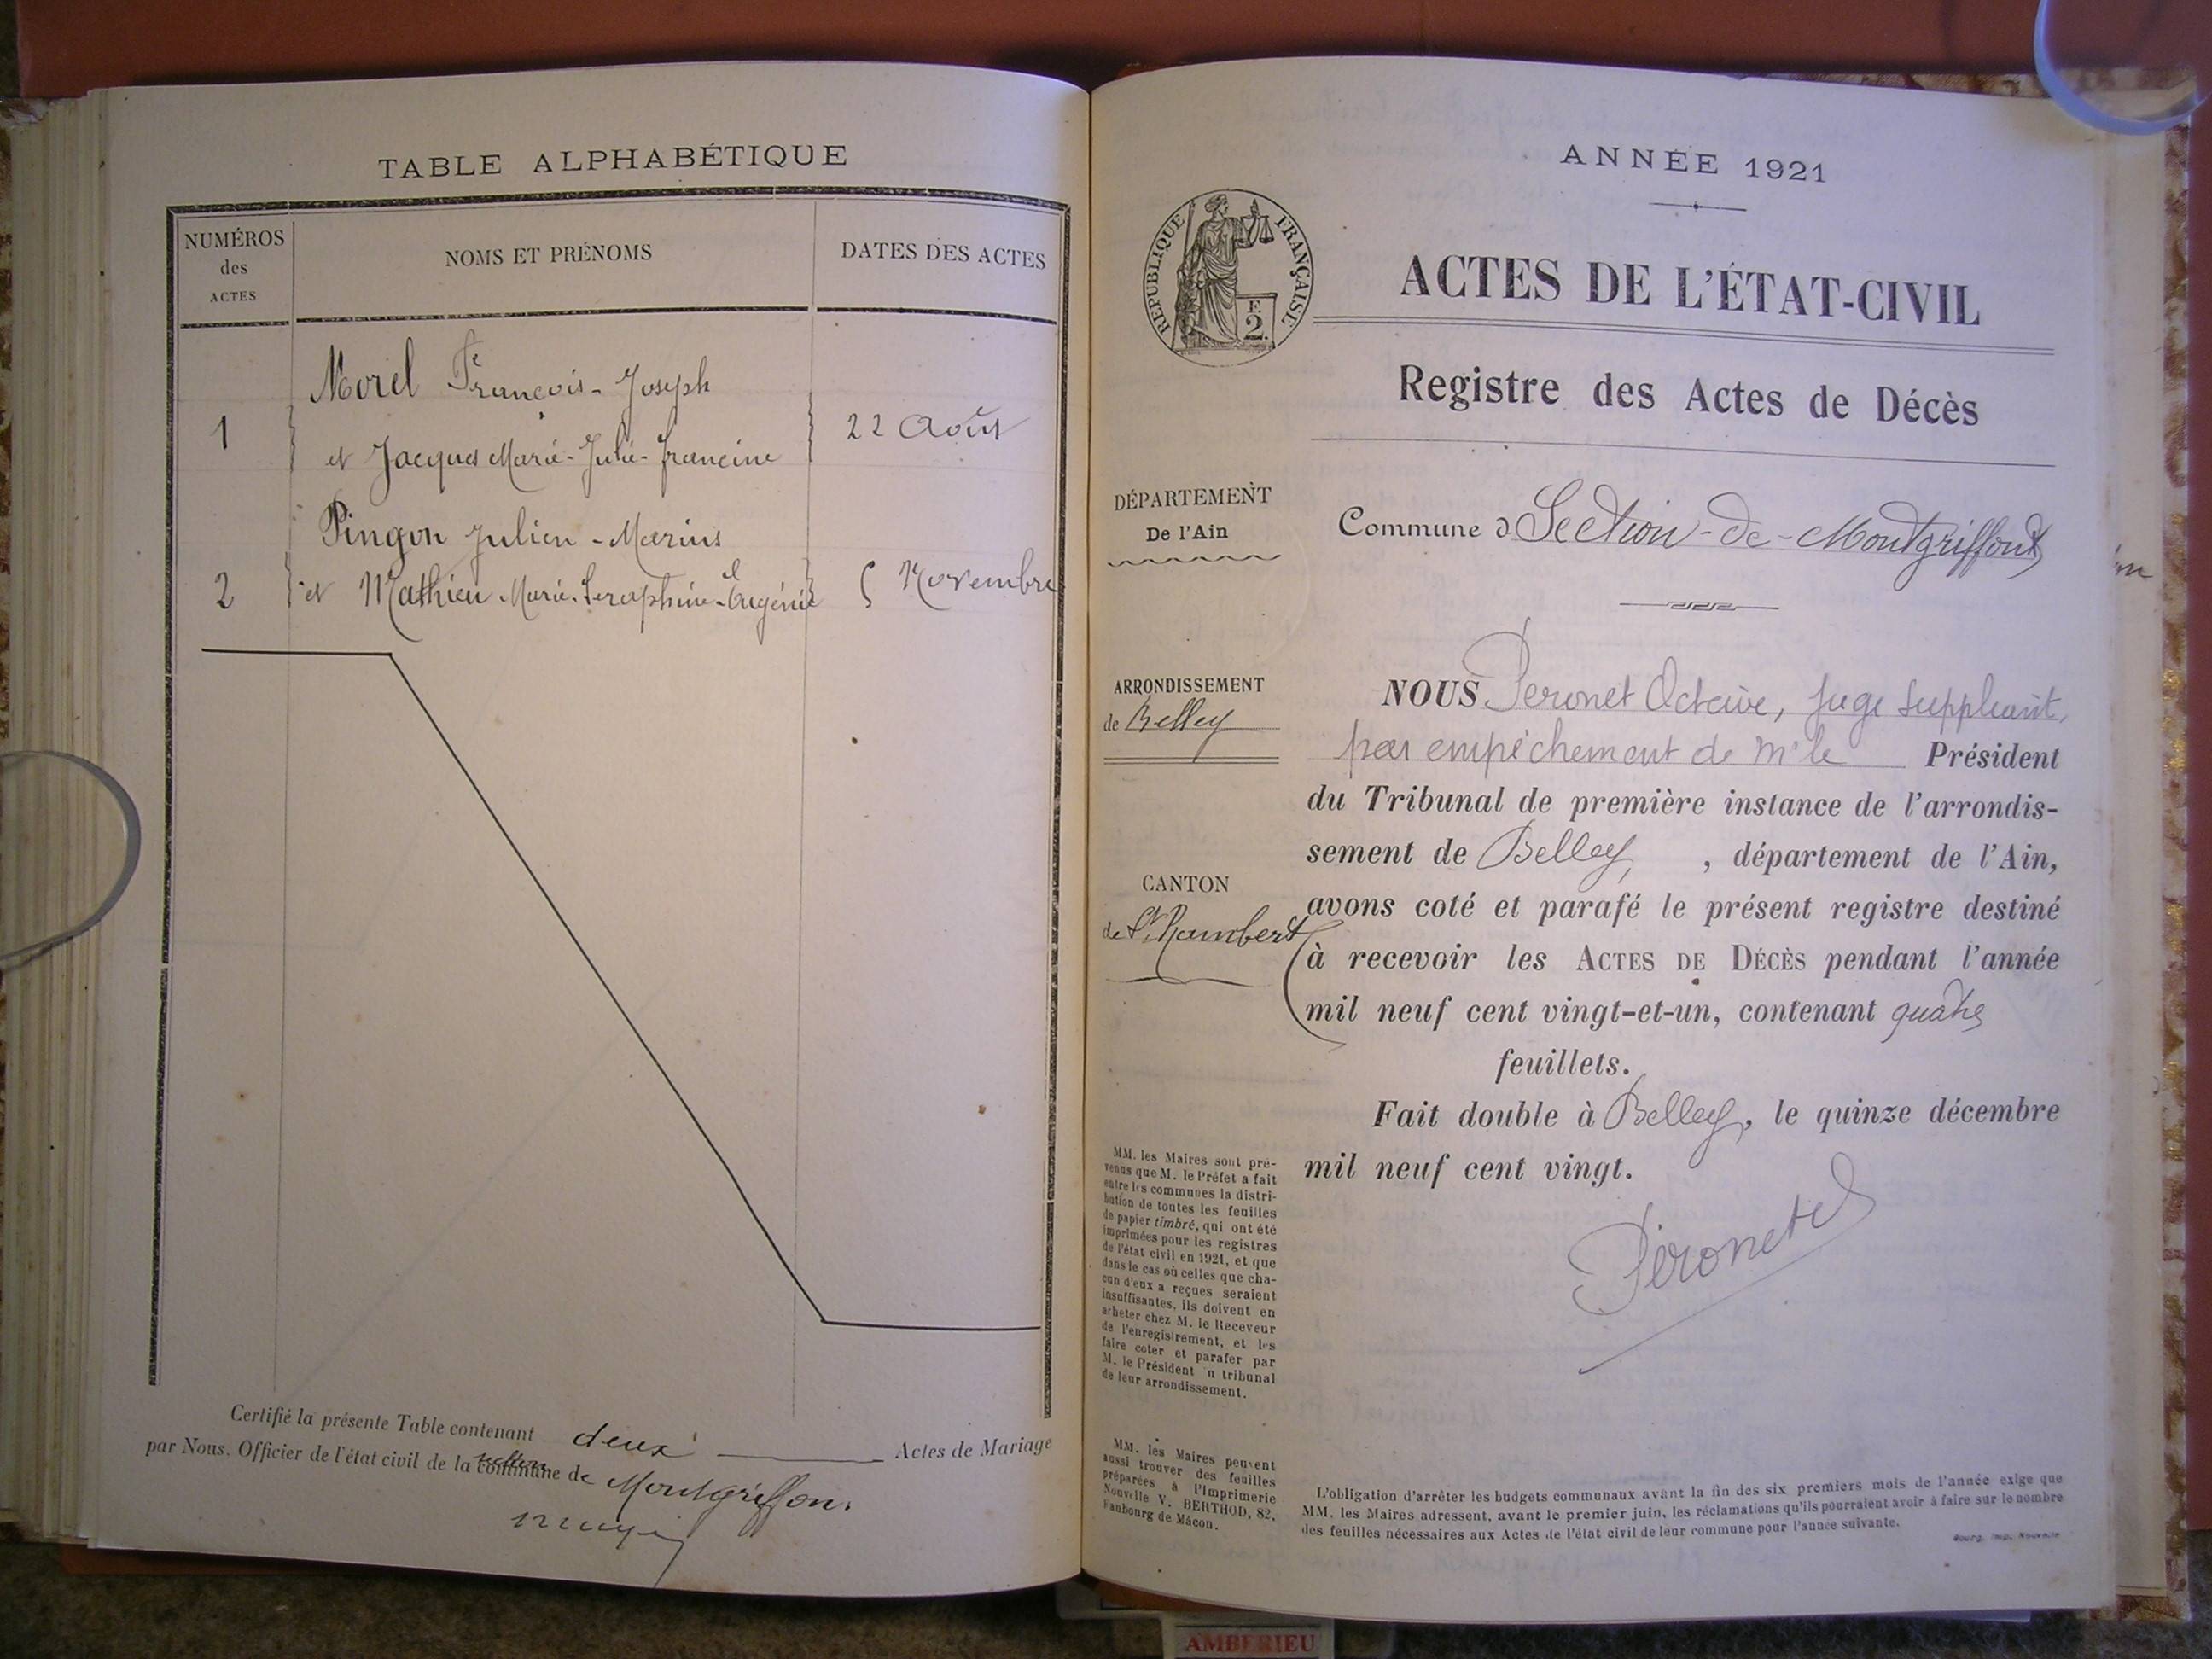 TABLE ALPHABÉTIQUE
NUMÉROS
des
ACTES
NOMS ET PRÉNOMS
DATES DES ACTES
Morel François-Joseph
1
et Jacques Marie-Julie-francine
22 Août
Pingon Julien-Marius
2
et Mathieu Marie-Seraphine-Eugénie
5 Novembre
Certifié la présente Table contenant deux Actes de Mariage
par Nous, Officier de l'état civil de la commune section de Montgriffon.
ANNÉE 1921
RÉPUBLIQUE FRANÇAISE
F.
2.
ACTES DE L'ÉTAT-CIVIL
Registre des Actes de Décès
DÉPARTEMENT
De l'Ain
Commune d Section-de-Montgriffont
ARRONDISSEMENT
de Belley
CANTON
de St Rambert
NOUS Peronet Octave, Juge Suppleant,
par empêchement de Mr le Président
du Tribunal de première instance de l'arrondis-
sement de Belley, , département de l'Ain,
avons coté et parafé le présent registre destiné
à recevoir les ACTES DE DÉCÈS pendant l'année
mil neuf cent vingt-et-un, contenant quatre
feuillets.
Fait double à Belley, le quinze décembre
mil neuf cent vingt.
Péronet
MM. les Maires sont pré-
venus que M. le Préfet a fait
entre les communes la distri-
bution de toutes les feuilles
de papier timbré, qui ont été
imprimées pour les registres
de l'état civil en 1921, et que
dans le cas où celles que cha-
cun d'eux a reçues seraient
insuffisantes, ils doivent en
acheter chez M. le Receveur
de l'enregistrement, et les
faire coter et parafer par
M. le Président n tribunal
de leur arrondissement.
MM. les Maires peuvent
aussi trouver des feuilles
préparées à l'Imprimerie
Nouvelle V. BERTHOD, 82,
Faubourg de Mâcon.
L'obligation d'arrêter les budgets communaux avant la fin des six premiers mois de l'année exige que
MM. les Maires adressent, avant le premier juin, les réclamations qu'ils pourraient avoir à faire sur le nombre
des feuilles nécessaires aux Actes de l'état civil de leur commune pour l'année suivante.
Bourg. Imp. Nouvelle
AMBERIEU